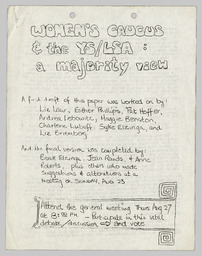 WOMEN'S CAUCUS
& the YS/LSA :
a majority view
A first draft of this paper was worked on by:
Liz Law, Esther Phillips, Pat Hoffer,
Andrea Lebowitz, Maggie Benston,
Charlene Lutoff, Syke Elzinga, and
Liz Ersenberg
And the final version was completed by:
Elzinga, Jean Rands, & Anne
Roberts, plus others who made
suggestions & alterations at a
meeting on Sunday, Aug 23
Attend the general meeting Thurs Aug 27
at 8:00 PM — Participate in this vital
debate/discussion and vote